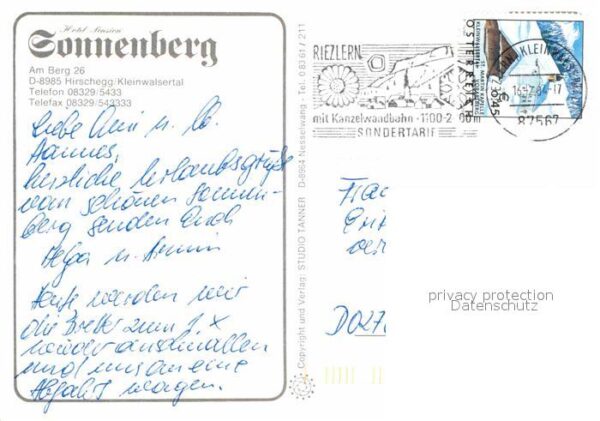 Hotel Pension
Sonnenberg
Am Berg 26
D-8985 Hirschegg/Kleinwalsertal
Telefon 08329/5433
Telefax 08329/543333
Liebe Omi u.
Hannes,
herzliche Urlaubsgrüße
vom schönen Sonnen-
berg senden Euch
Helga u. Armin
Heute werden wir
die Bretter zum 1.x
wieder anschnallen
und uns an eine
Abfahrt wagen.
Copyright und Verlag: STUDIO TANNER D-8964 Nesselwang · Tel. 0 83 61 / 211
RIEZLERN
mit Kanzelwandbahn · 1100-2000m
SONDERTARIF
ÖSTERREICH
KLEINWALSERTAL
87567
privacy protection
Datenschutz